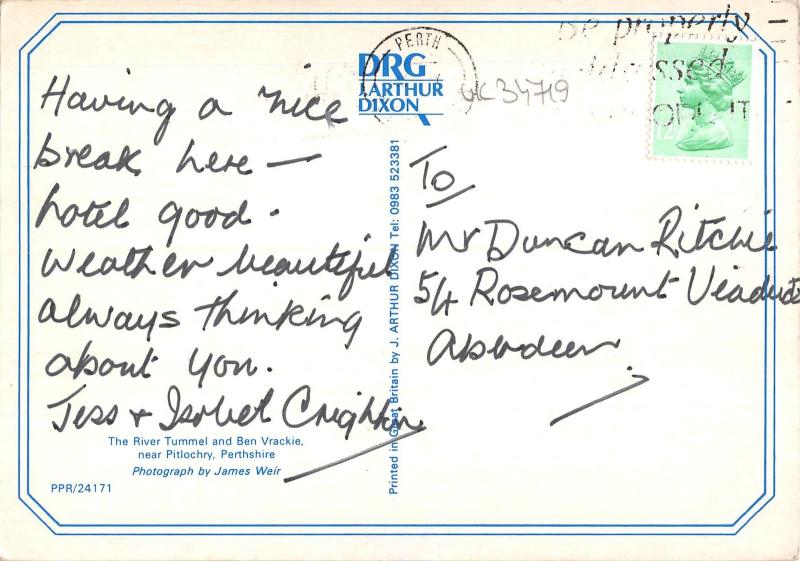 Having a nice
break here —
hotel good.
Weather beautiful
always thinking
about you.
Jess & Isobel Crighton
The River Tummel and Ben Vrackie,
near Pitlochry, Perthshire
Photograph by James Weir
PPR/24171
DRG
J. ARTHUR
DIXON
Printed in Great Britain by J. ARTHUR DIXON Tel: 0983 523381
PERTH
Be properly
34719
To
Mr Duncan Ritchie
54 Rosemount Viaduct
Aberdeen.